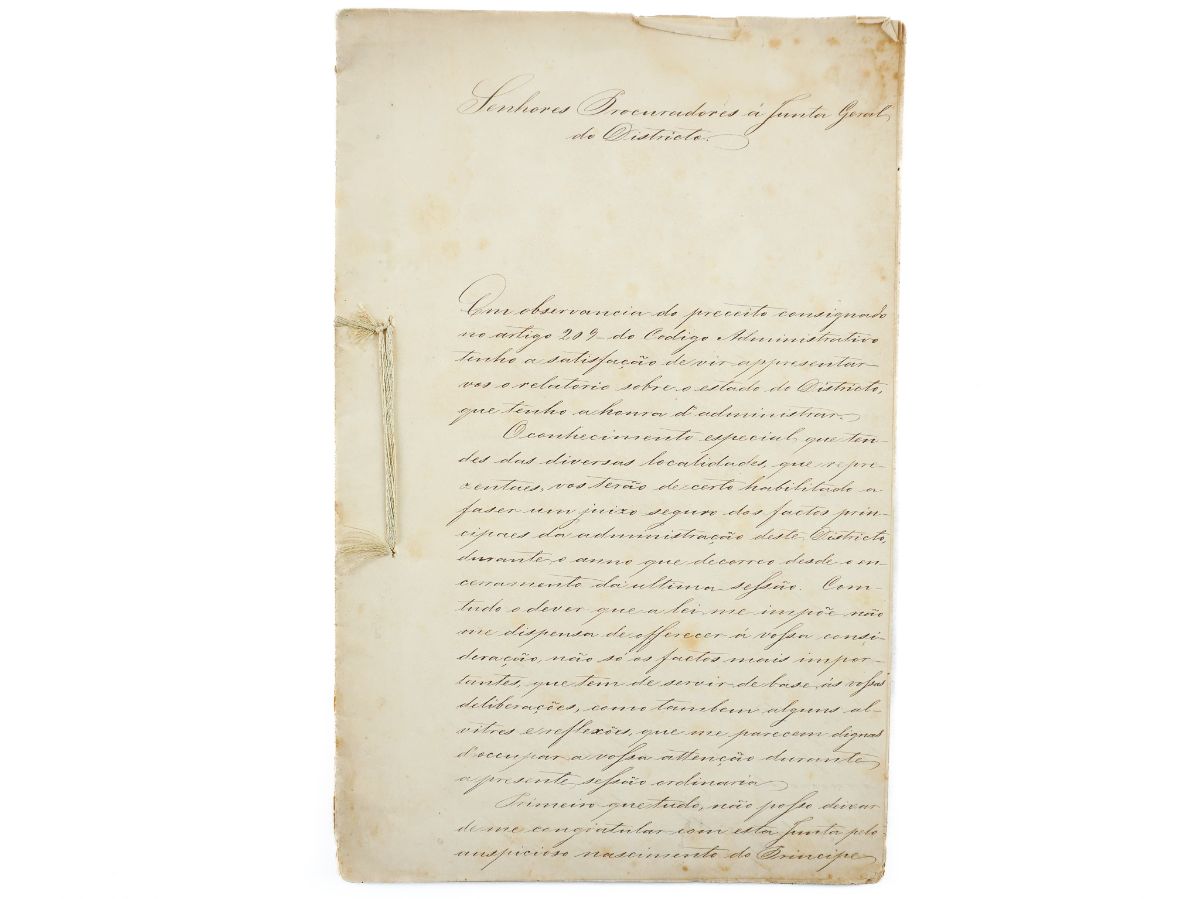 Senhores Procuradores á Junta Geral
do Districto.
Em observancia do preceito consignado
no artigo 209 do Codigo Administrativo
tenho a satisfação de vir appresentar-
vos o relatorio sobre o estado do Districto,
que tenho a honra d'administrar.
O conhecimento especial, que ten-
des das diversas localidades, que repre-
zentaes, vos terão de certo habilitado a
faser um juizo seguro dos factos prin-
cipaes da administração deste Districto,
durante o anno que decorreo desde o en-
cerramento da ultima sessão. Com-
tudo o dever que a lei me impõe não
me dispensa de offerecer á vossa consi-
deração, não só os factos mais impor-
tantes, que tem de servir de base ás vossas
deliberações, como tambem alguns al-
vitres e reflexões, que me parecem dignas
d'occupar a vossa attenção durante
a presente sessão ordinaria.
Primeiro que tudo, não posso deixar
de me congratular com esta Junta pelo
auspicioso nascimento do Principe